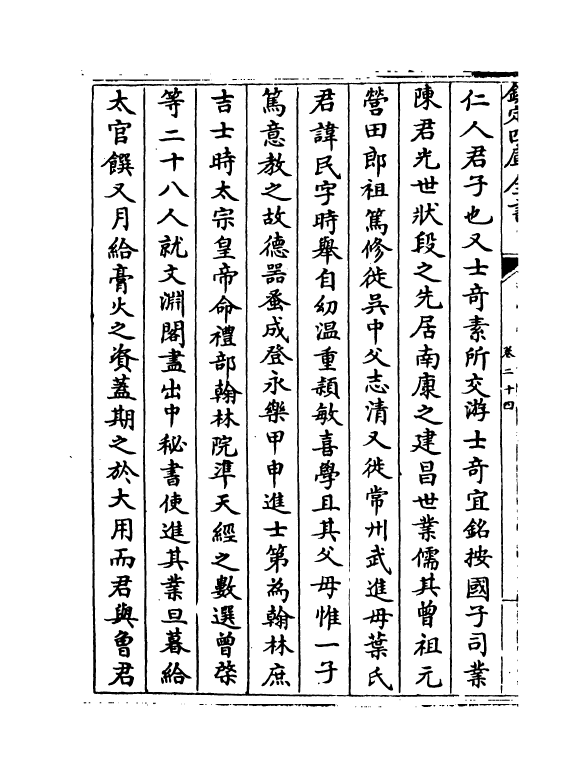 欽定四庫全書
卷二十四
仁人君子也又士奇素所交游士奇宜銘按國子司業
陳君光世狀段之先居南康之建昌世業儒其曾祖元
營田郎祖篤修徙吳中父志清又徙常州武進母葉氏
君諱民字時舉自幼溫重頴敏喜學且其父母惟一子
篤意教之故德器蚤成登永樂甲申進士第為翰林庶
吉士時太宗皇帝命禮部翰林院準天經之數選曾棨
等二十八人就文淵閣盡出中秘書使進其業旦暮給
太官饌又月給膏火之資蓋期之於大用而君與魯君